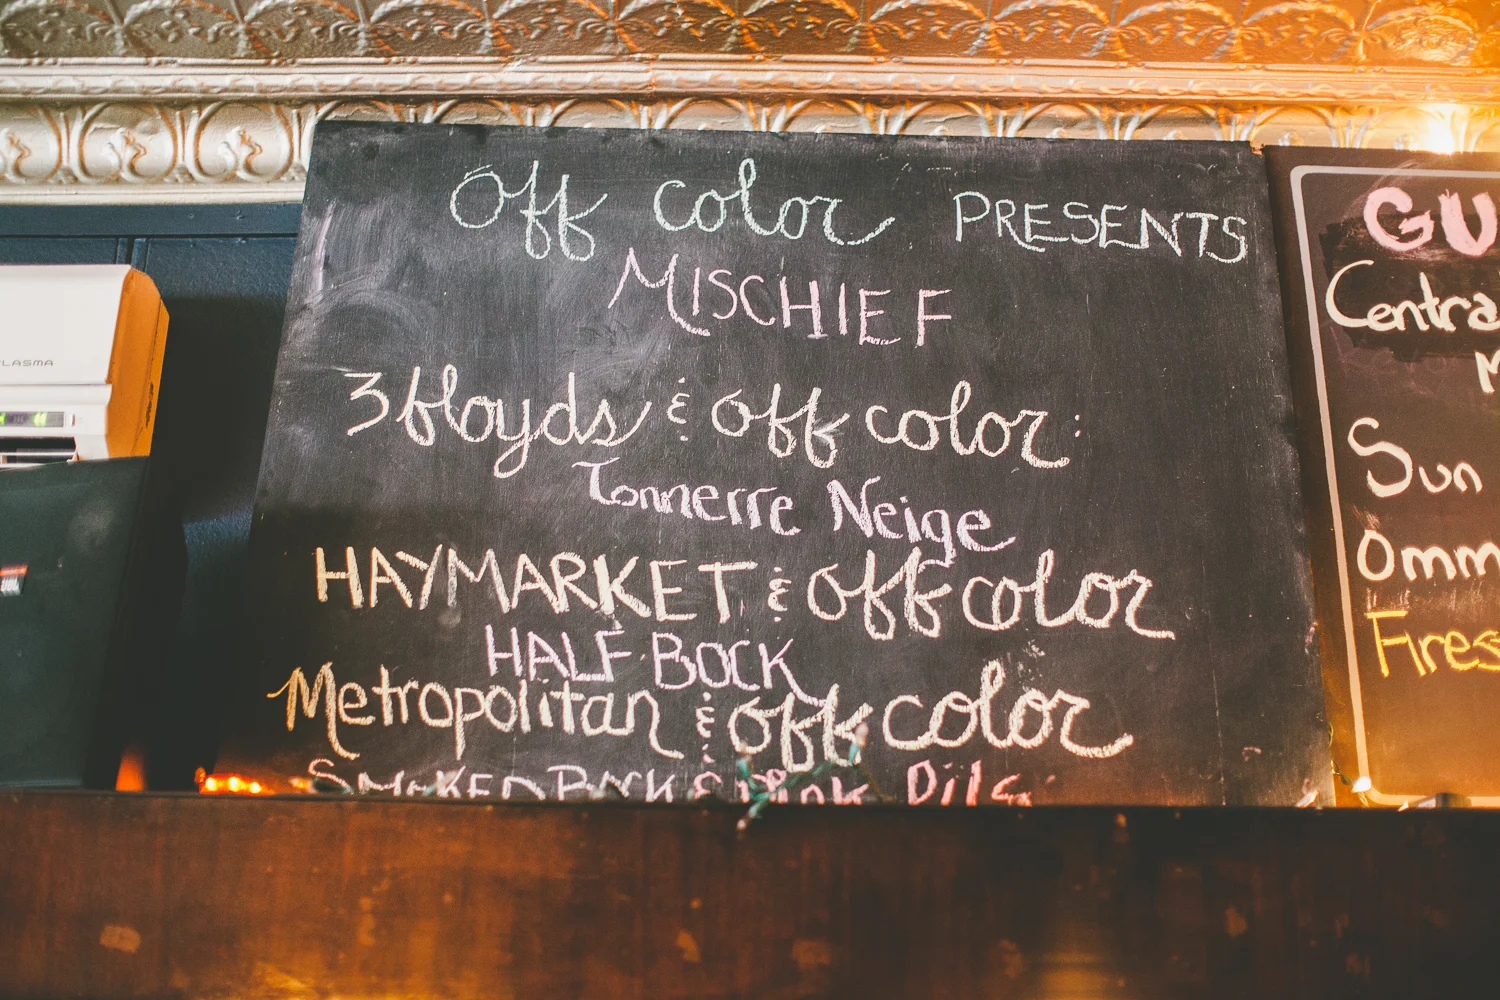 Off color PRESENTS
MISCHIEF
3 floyds & off color:
Tonnerre Neige
HAYMARKET & off color
HALF BOCK
Metropolitan & off color
SMOKED BOCK & Pils
PLASMA
GU
Centra
M
Sun
Omm
Fires